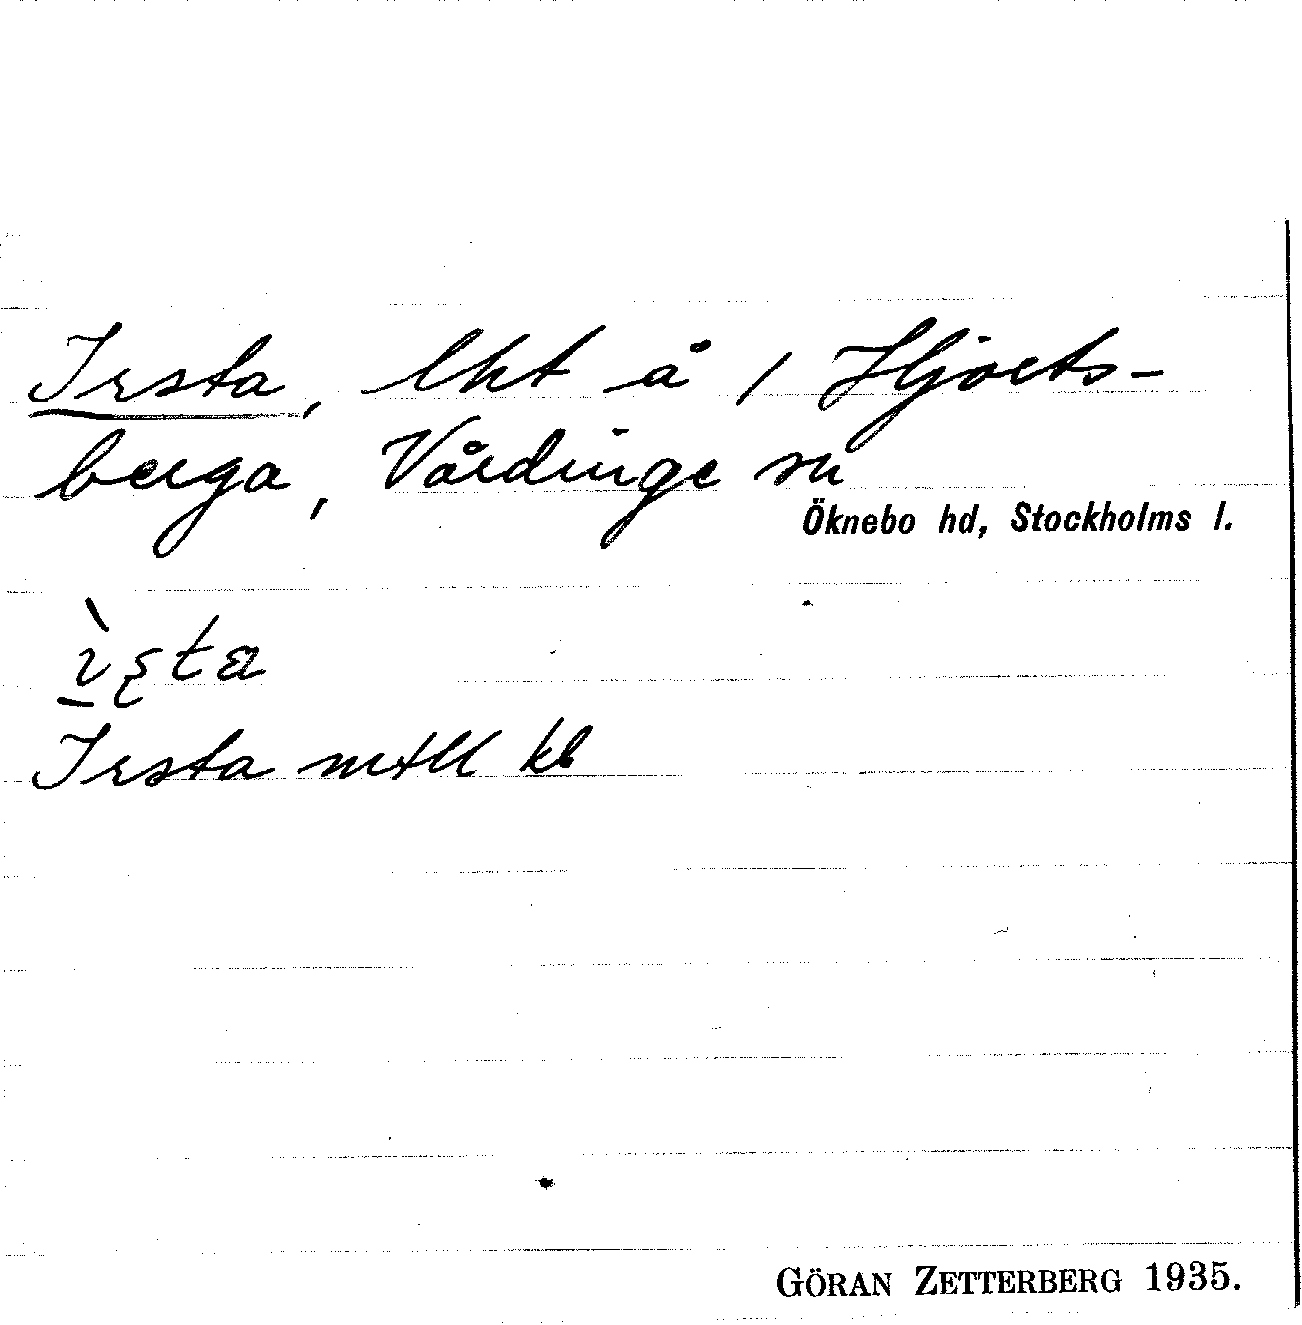 Irsta, lht å 1 Hjorts-
berga, Vårdinge sn
Öknebo hd, Stockholms l.
ìʂta
Irsta mtll kb
GÖRAN ZETTERBERG 1935.